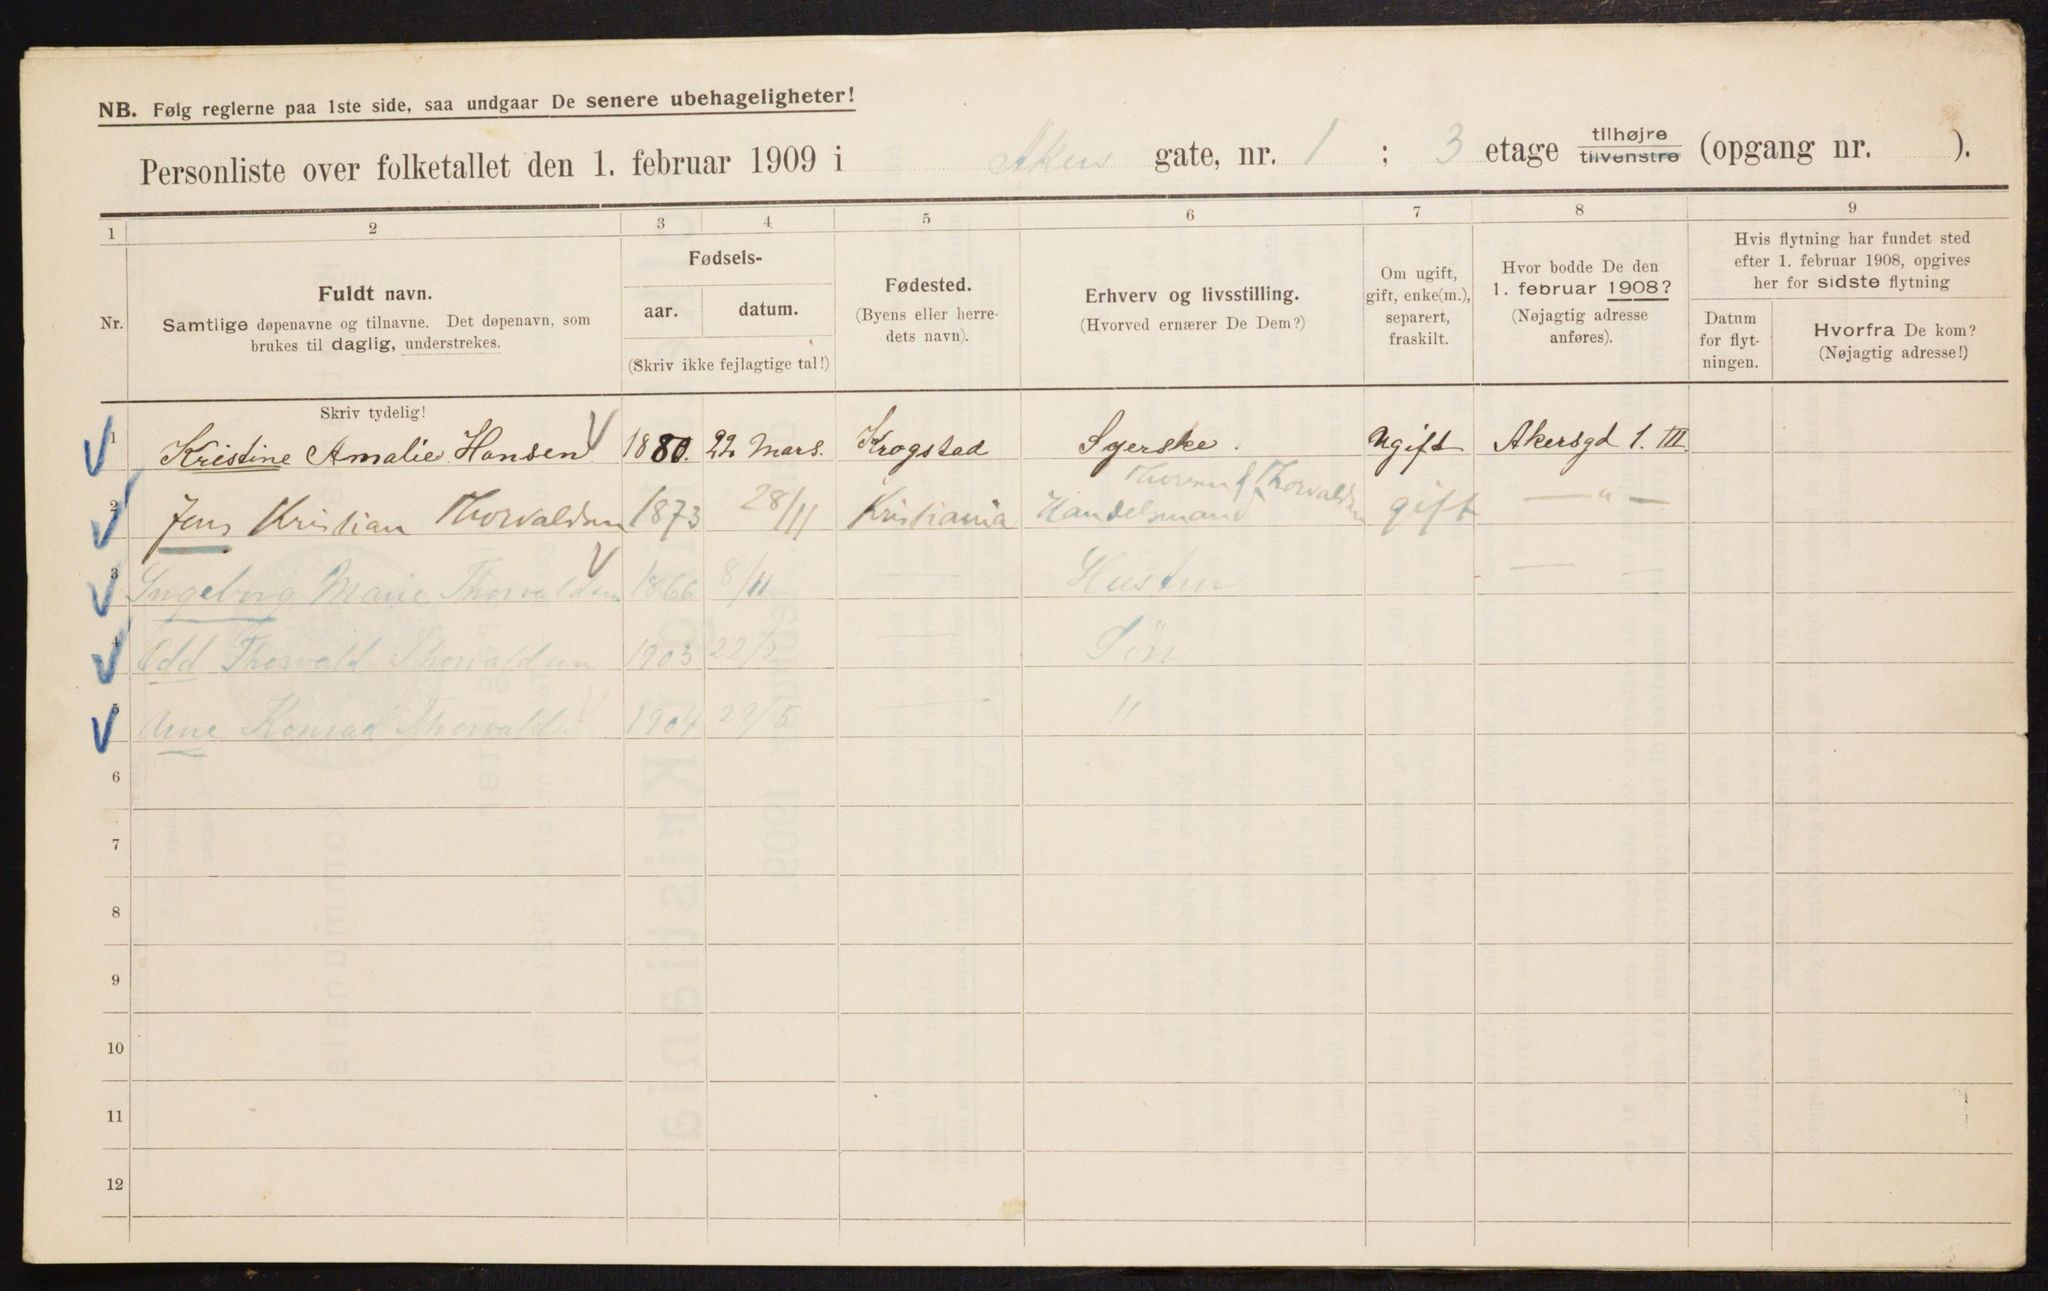 NB. Følg reglerne paa 1ste side, saa undgaar De senere ubehageligheter!
Personliste over folketallet den 1. februar 1909 i Akers gate, nr. 1 ; 3 etage tilhøjre tilvenstre (opgang nr. ).
1 2 3 4 5 6 7 8 9
Nr.
Fuldt navn.
Samtlige døpenavne og tilnavne. Det døpenavn, som
brukes til daglig, understrekes.
Skriv tydelig!
Fødsels-
aar. datum.
(Skriv ikke fejlagtige tal!)
Fødested.
(Byens eller herre-
dets navn).
Erhverv og livsstilling.
(Hvorved ernærer De Dem?)
Om ugift,
gift, enke(m.),
separert,
fraskilt.
Hvor bodde De den
1. februar 1908?
(Nøjagtig adresse
anføres).
Hvis flytning har fundet sted
efter 1. februar 1908, opgives
her for sidste flytning
Datum
for flyt-
ningen.
Hvorfra De kom?
(Nøjagtig adresse!)
1 Kristine Amalie Hansen 1880. 22 Mars. Krogstad Syerske. Ugift Akersgd 1. III
2 Jens Kristian Thorvaldsen 1873 28/11 Kristiania Handelsmand Thorvaldsen gift — " —
3 Ingeborg Marie Thorvaldsen 1866 8/11 — Hustru — —
4 Odd Thorvald Thorvaldsen 1903 22/2 — Søn
5 Arne Konrad Thorvaldsen 1904 29/5 — "
6
7
8
9
10
11
12